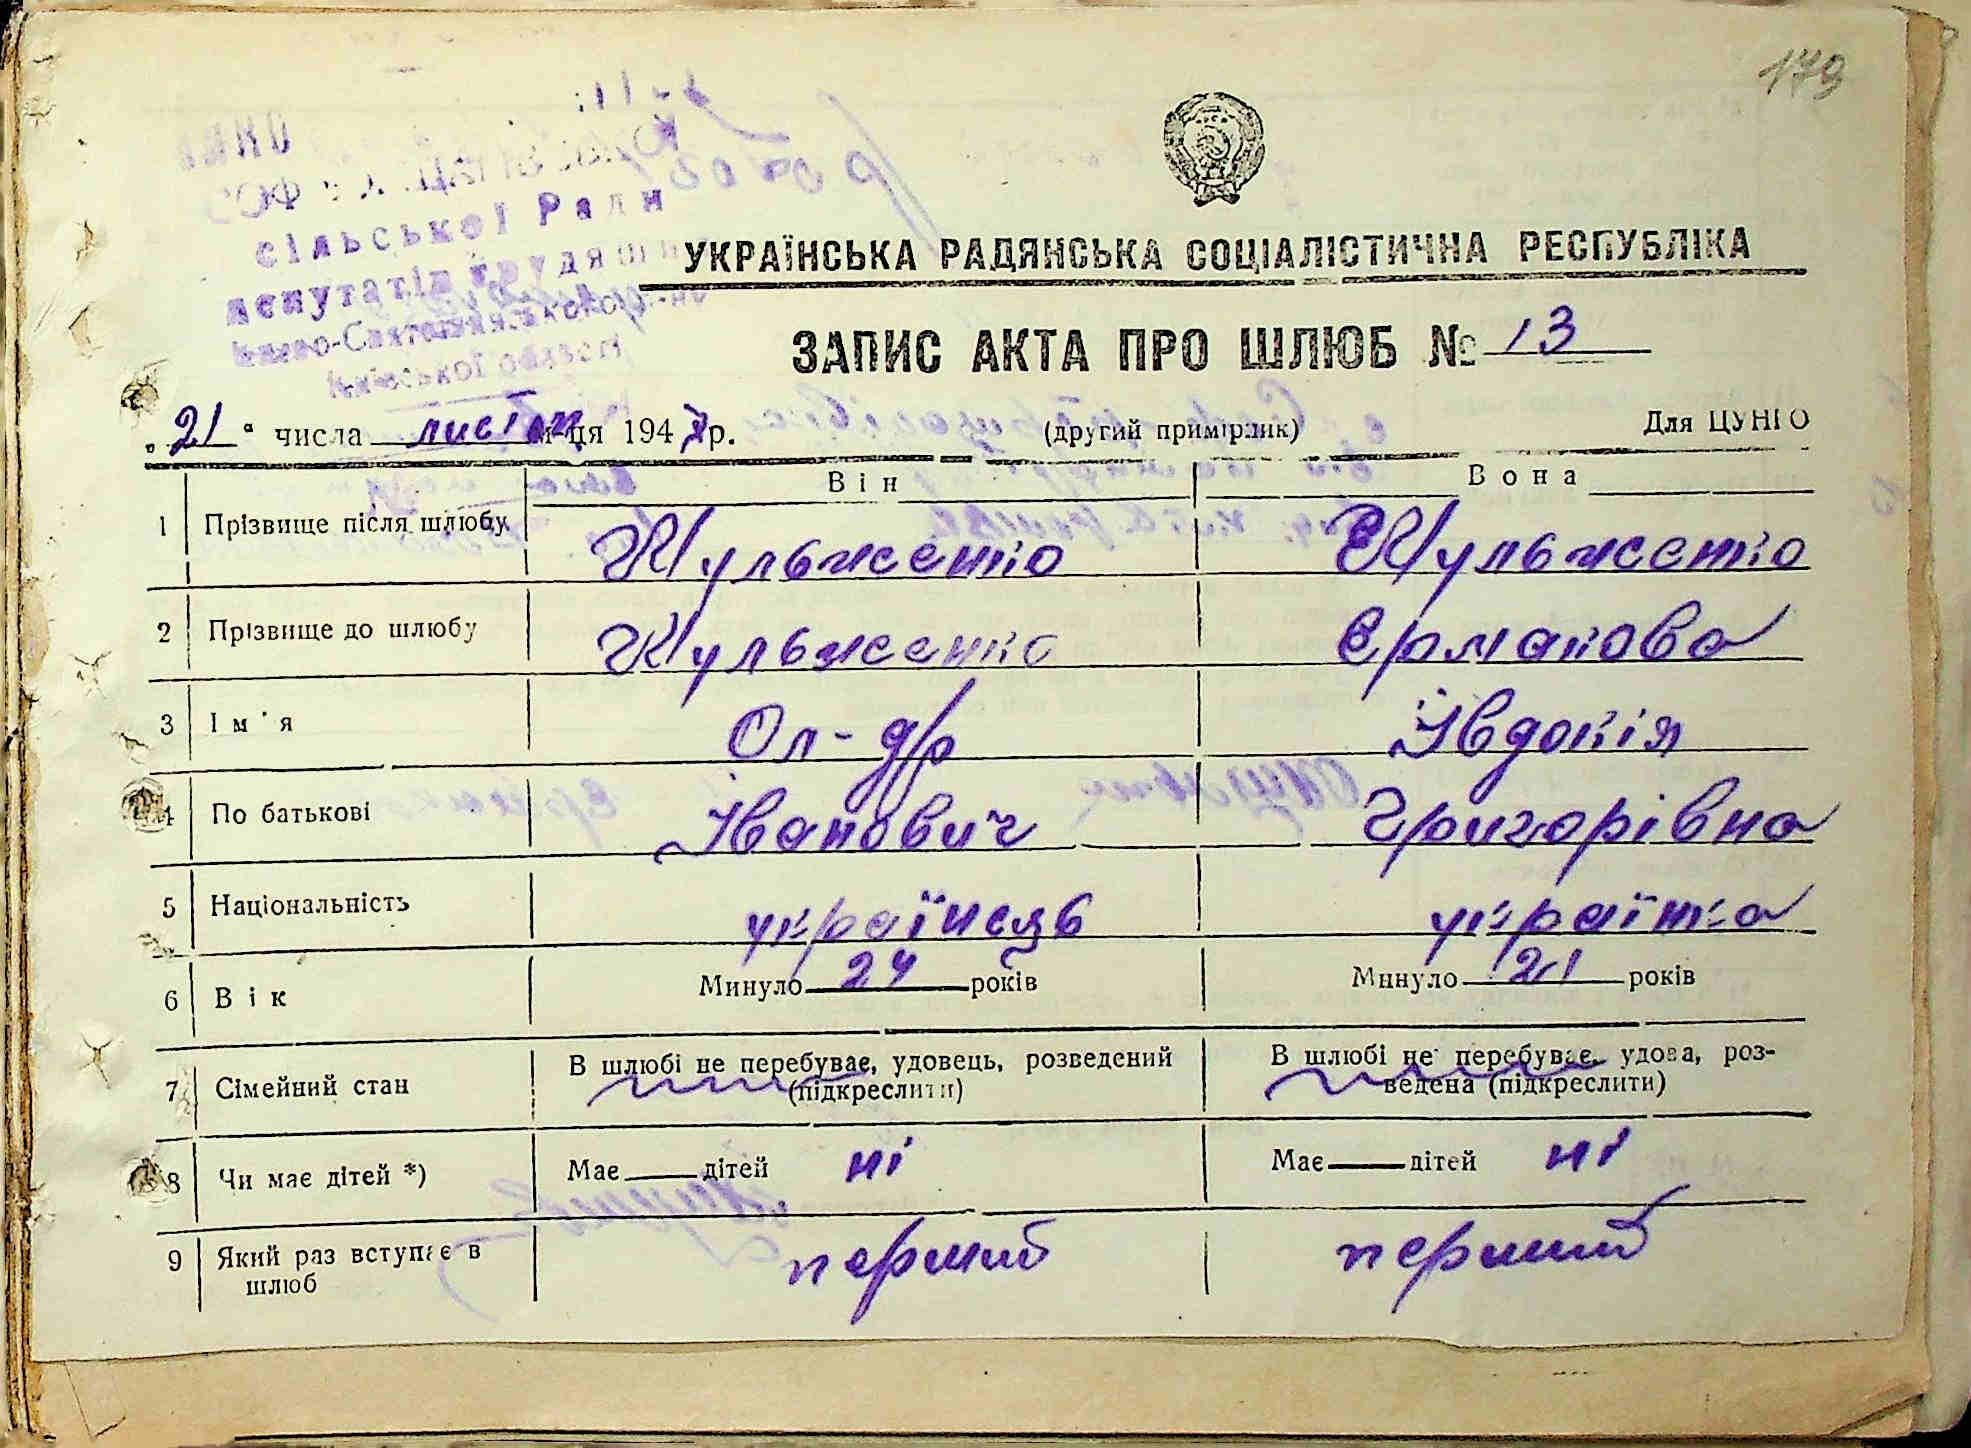 179
сільської Ради
депутатів трудящих
Києво-Святошинського р-ну
Київської області
УКРАЇНСЬКА РАДЯНСЬКА СОЦІАЛІСТИЧНА РЕСПУБЛІКА
ЗАПИС АКТА ПРО ШЛЮБ № 13
„21“ числа листоп м-ця 1947 р. (другий примірник) Для ЦУНГО
Він Вона
1 Прізвище після шлюбу Кульженко Кульженко
2 Прізвище до шлюбу Кульженко Єрмакова
3 Ім'я Ол-др Івдокія
4 По батькові Іванович Григорівна
5 Національність українець українка
6 Вік Минуло 24 років Минуло 21 років
7 Сімейний стан В шлюбі не перебуває, удовець, розведений В шлюбі не перебуває, удова, роз-
(підкреслити) ведена (підкреслити)
8 Чи має дітей *) Має дітей ні Має дітей ні
9 Який раз вступає в перший перший
шлюб